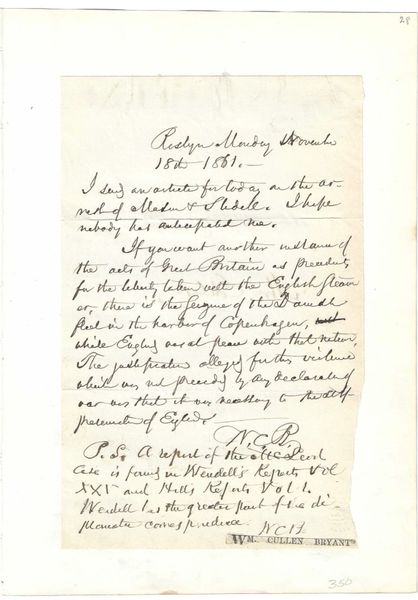 28
Roslyn Monday November
18th 1861. —
I send an article for today on the ar-
rest of Mason & Slidell. I hope
nobody has anticipated me.
If you want another instance of
the acts of Great Britain as precedents
for the liberty taken with the English steam
er, there is the seizure of the Danish
fleet in the harbor of Copenhagen,
while England was at peace with that nation.
The justification alleged for this violence
which was not preceded by any declaration of
war was that it was necessary to the self
preservation of England.
W. C. B.
P. S. A report of the McLeod
Case is found in Wendell's Reports Vol
XXV and Hill's Reports Vol 1.
Wendell has the greater part of the di-
plomatic correspondence.
WM. CULLEN BRYANT
350